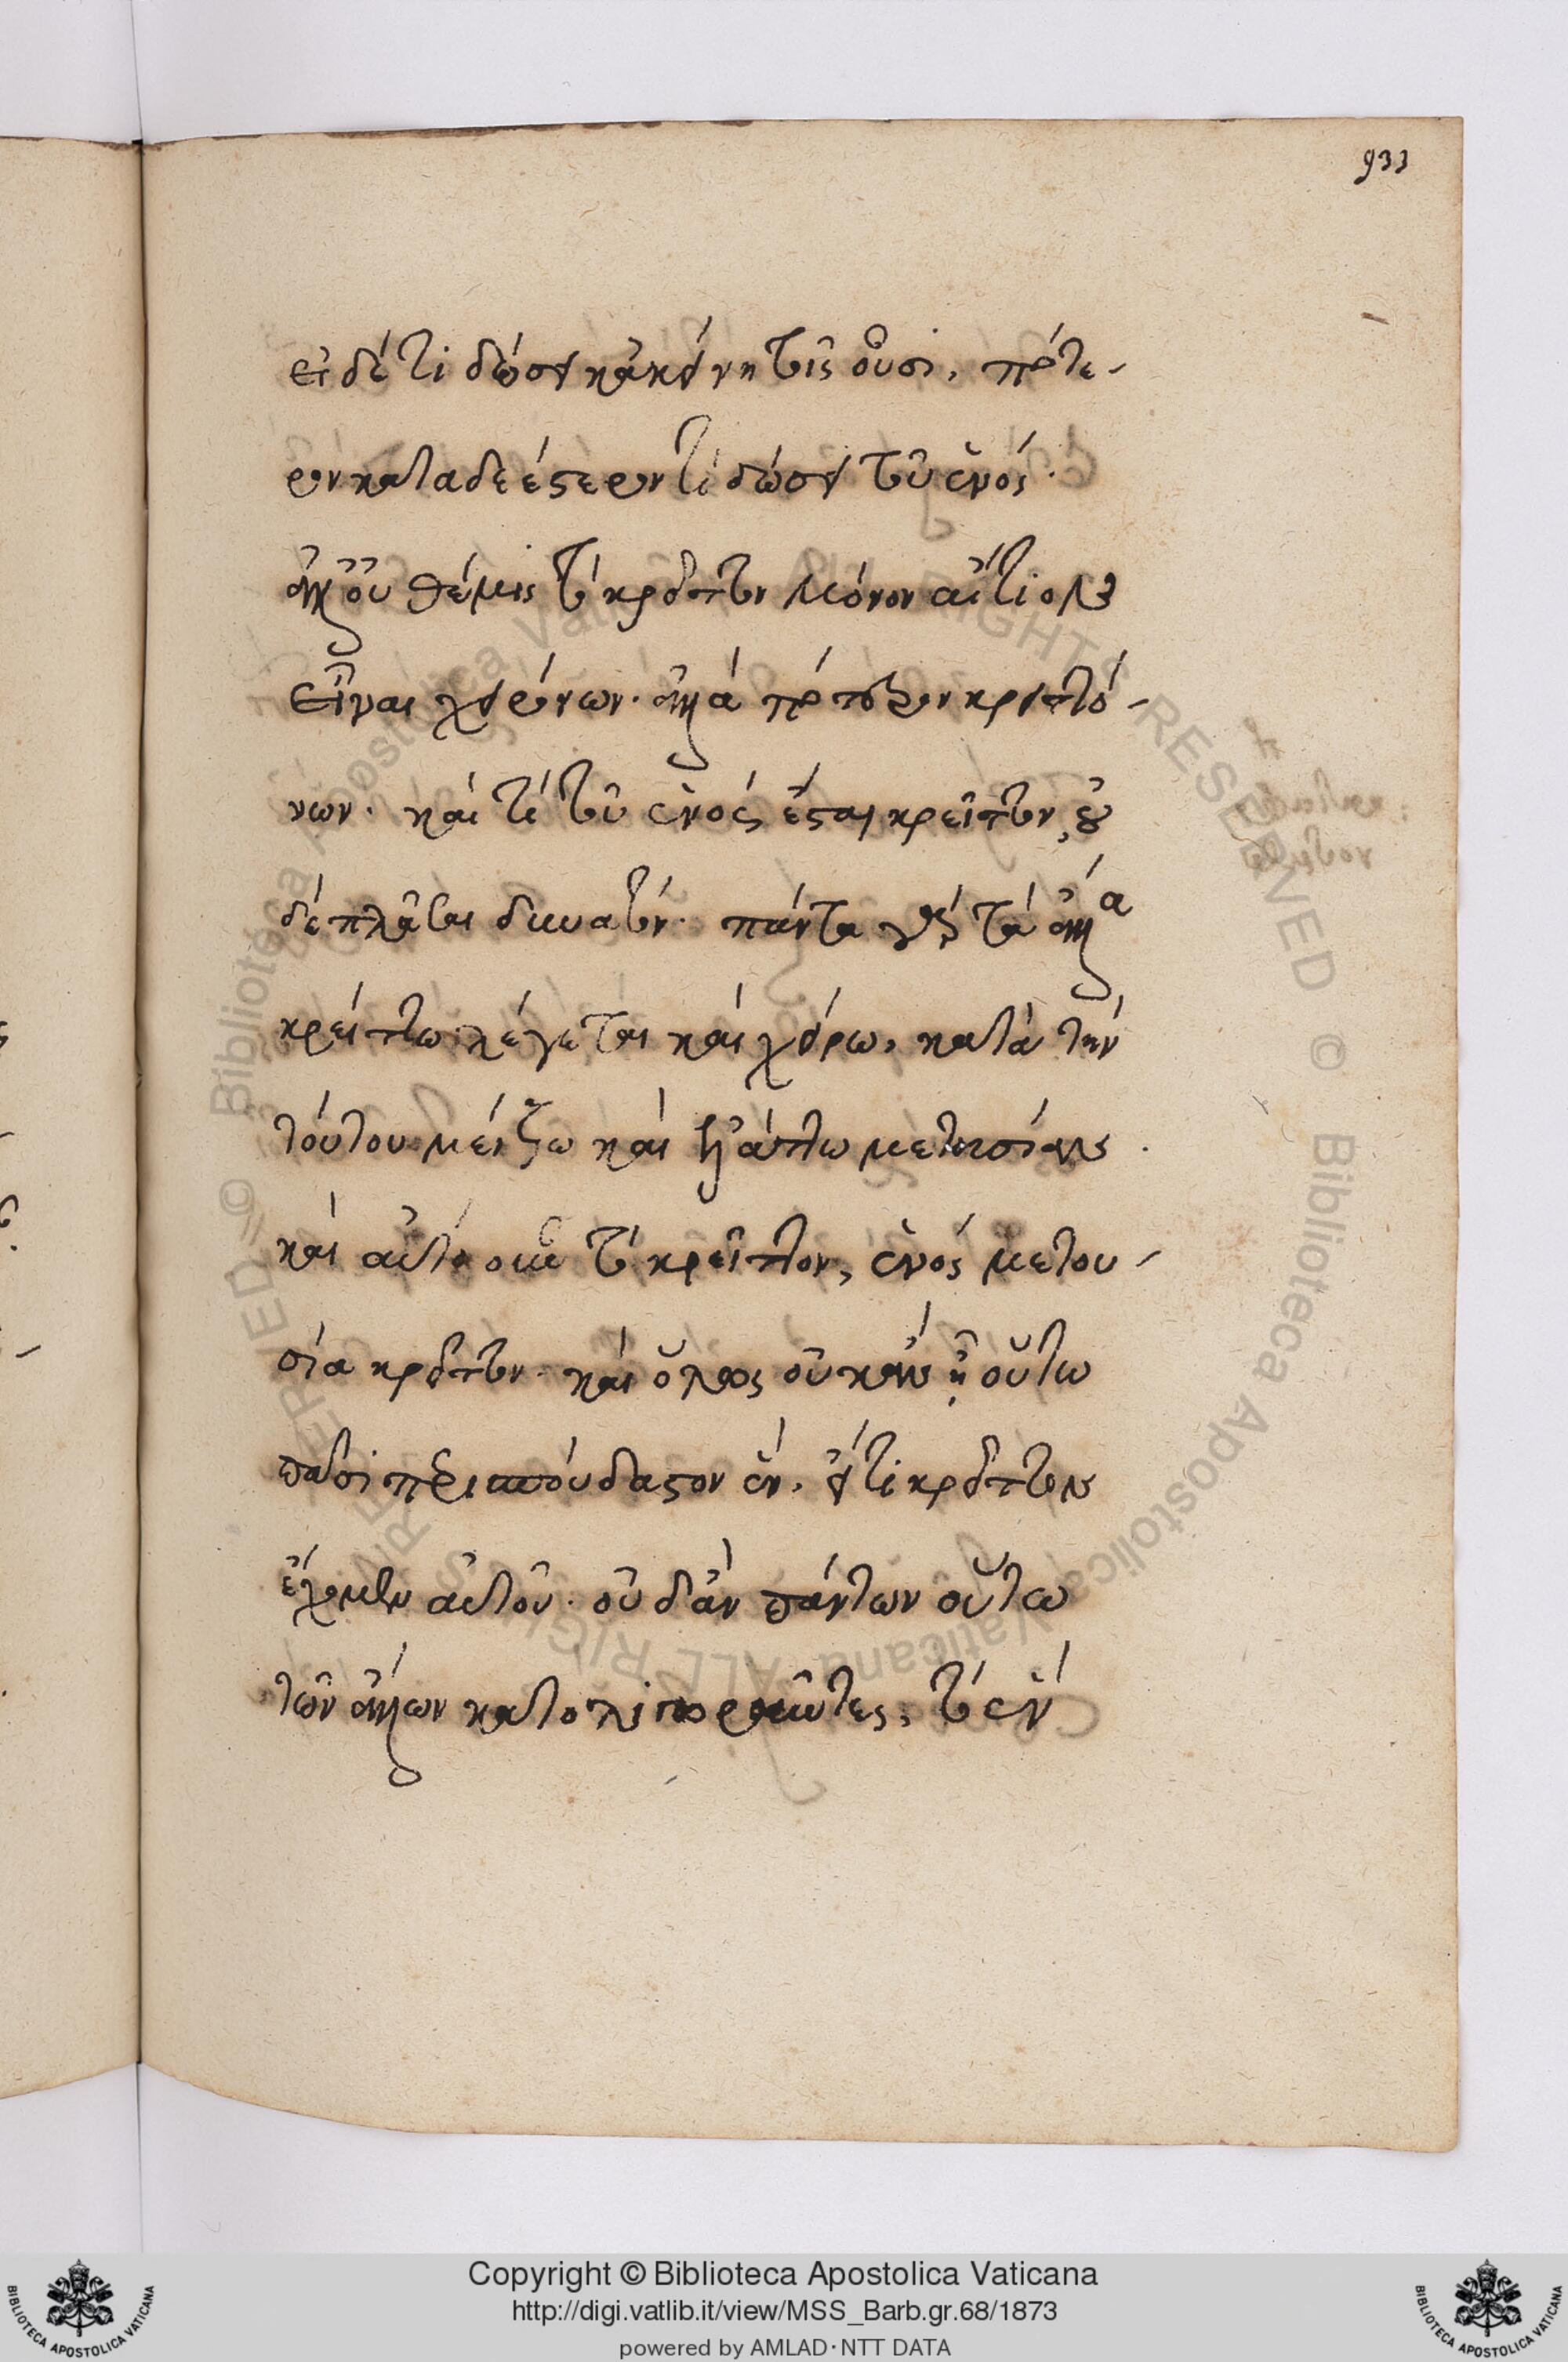 933
εἰ δέ τι δώσει κἀκείνη τοῖς οὖσι, πότε-
ρον καταδεέστερόν τι δώσει τοῦ ἑνός·
ἀλλ' οὐ θέμις τὸ κρεῖττον μόνον αἴτιον
εἶναι χειρόνων· ἀλλὰ πρότερον κρειττό-
νων· καὶ τί τοῦ ἑνὸς ἔσται κρεῖττον, οὐ
δὲ πλάσαι δυνατόν· πάντα γὰρ τὰ ἄλλα
κρείττω λέγεται καὶ χείρω, κατὰ τὴν
τούτου μείζω καὶ ἐλάττω μετουσίαν·
καὶ αὐτὸ οὖν τὸ κρεῖττον, ἑνὸς μετου-
σίᾳ κρεῖττον· καὶ ὅλως οὐκ ἂν ᾖ οὕτω
πᾶσι περισπούδαστον ἕν, εἴ τι κρεῖττον
ἔχομεν αὐτοῦ· οὐδ' ἂν πάντων οὕτω
τῶν ἄλλων κατολιγωροῦντες, τὸ ἓν
Copyright © Biblioteca Apostolica Vaticana
http://digi.vatlib.it/view/MSS_Barb.gr.68/1873
powered by AMLAD·NTT DATA
BIBLIOTECA APOSTOLICA VATICANA
BIBLIOTECA APOSTOLICA VATICANA